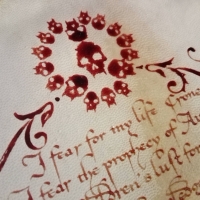 I fear for my life Crone
I fear the prophecy of Au
dren's lust for